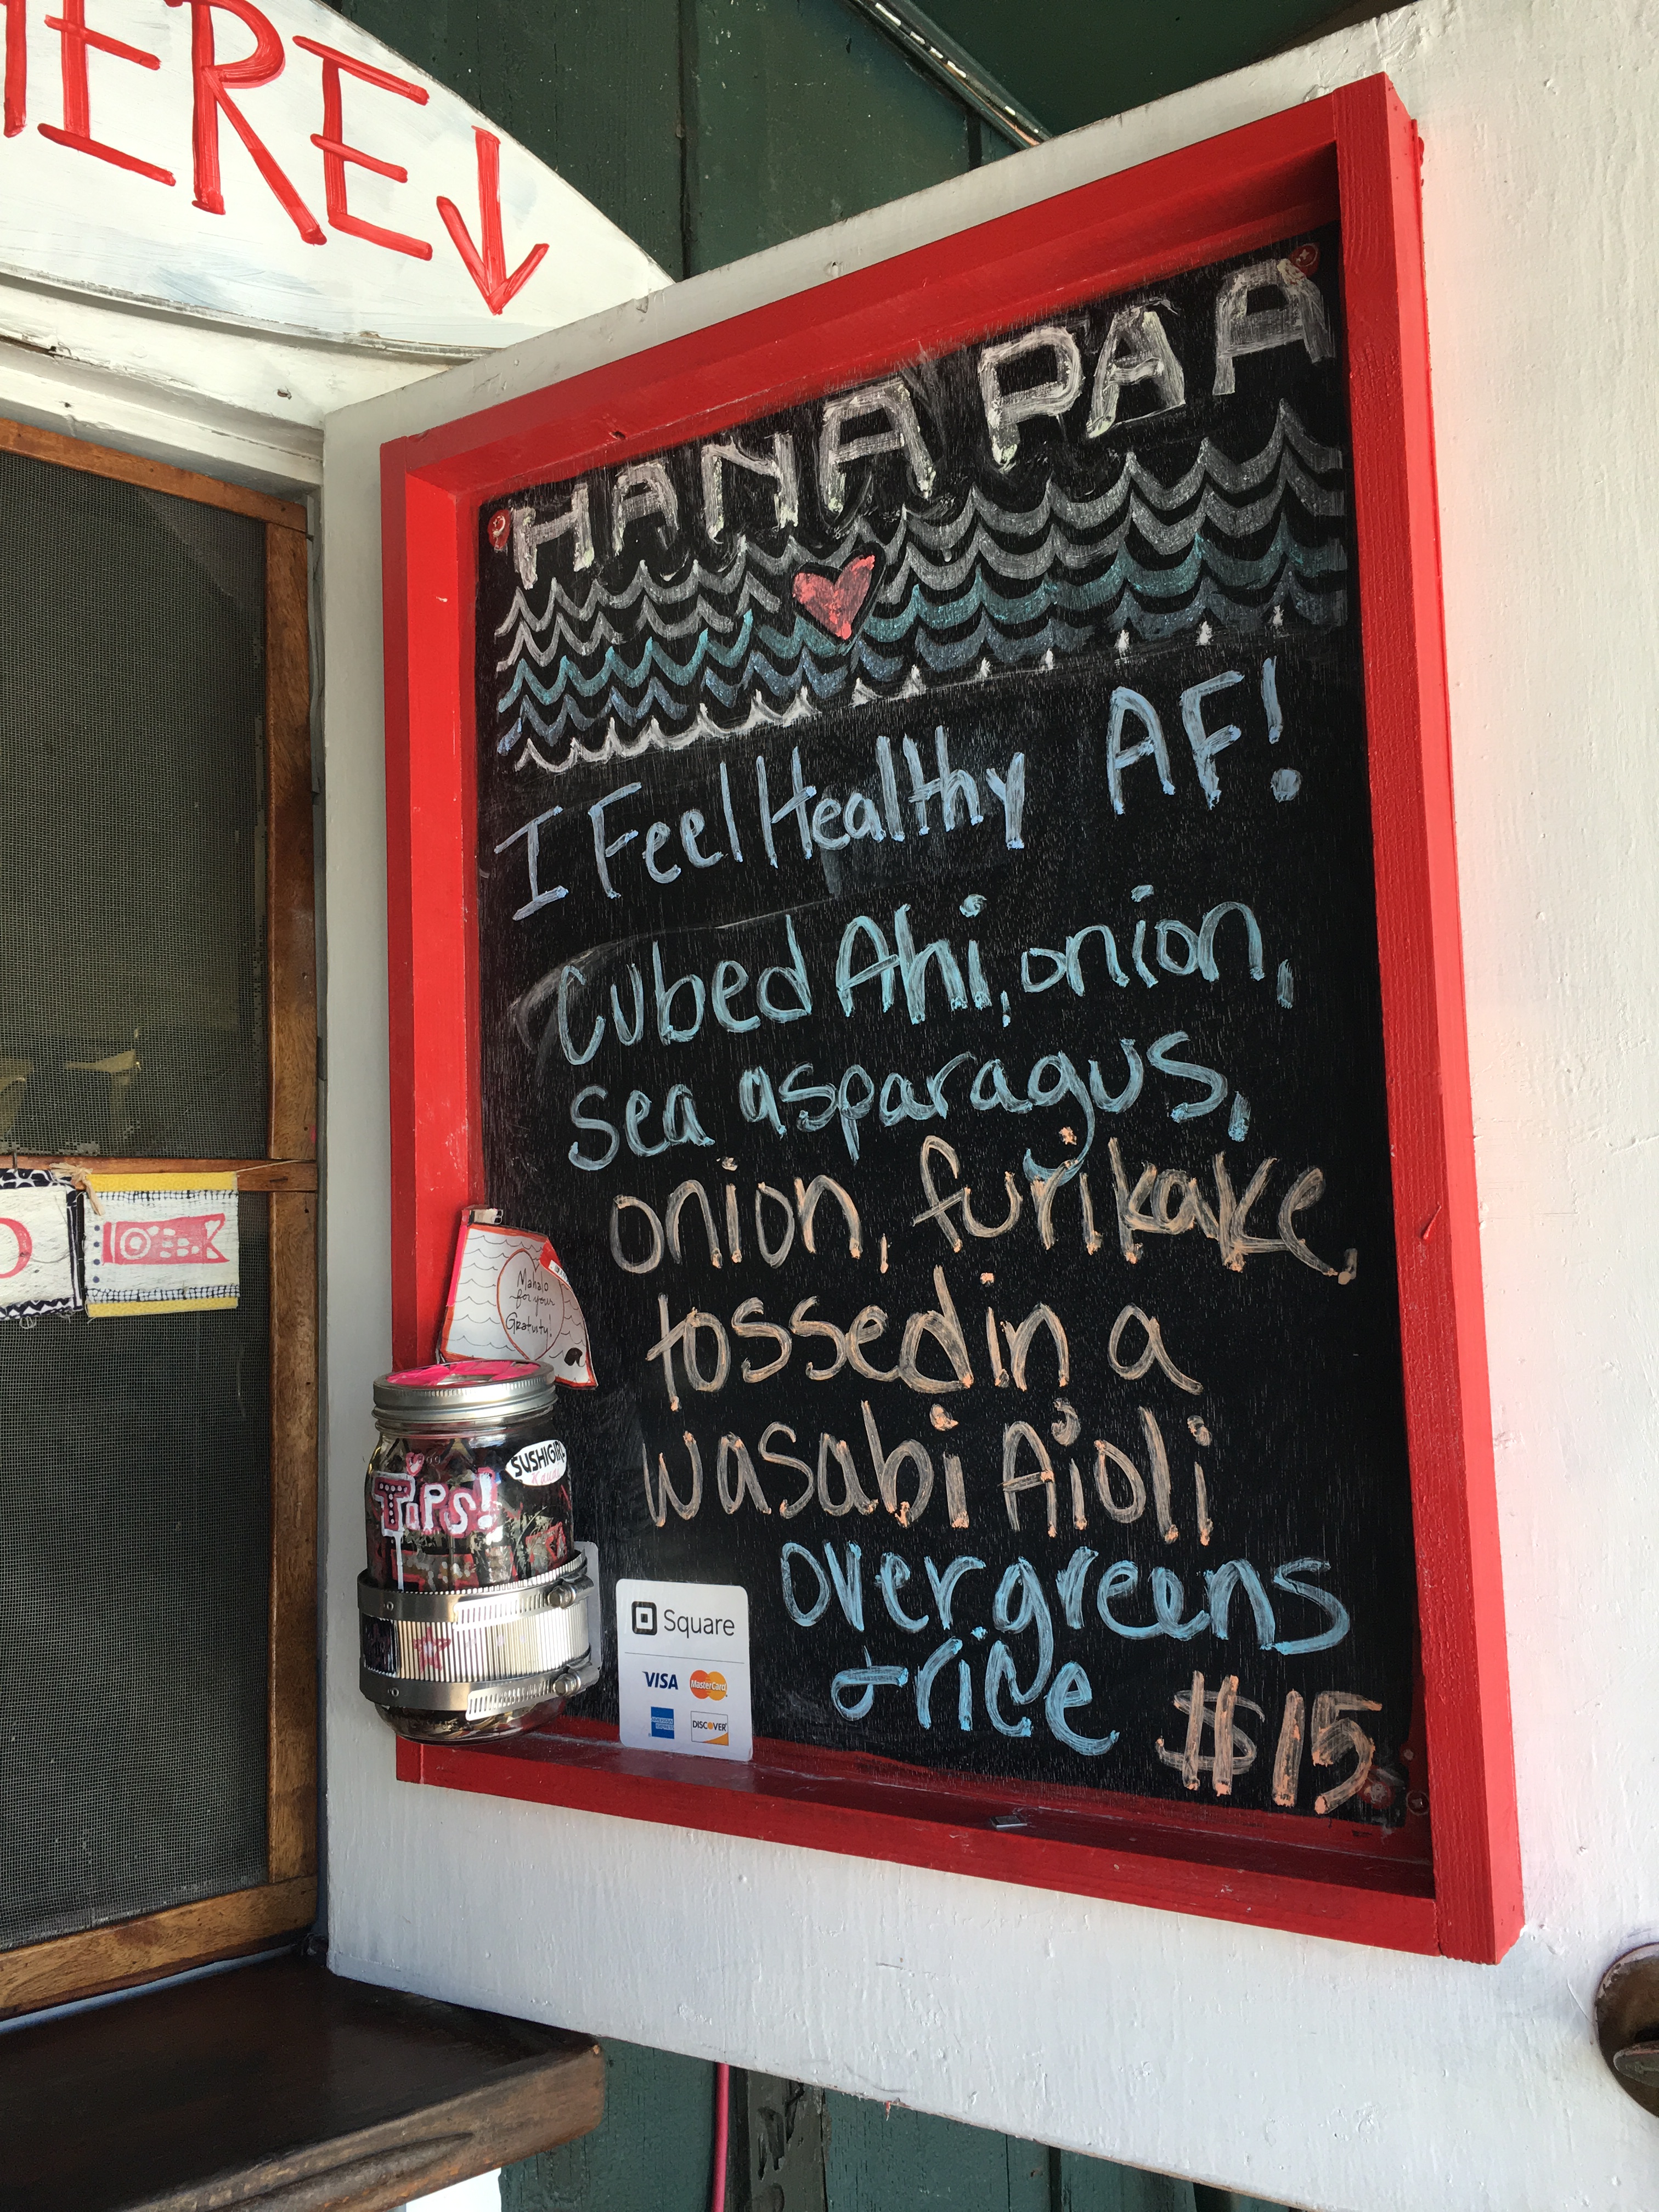 HERE
HANA PAA
I Feel Healthy AF!
Cubed Ahi, onion,
sea asparagus,
onion, furikake,
tossed in a
wasabi Aioli
over greens
+ rice $15
Mahalo
for your
Gratuity!
SUSHIGIRL
Kauai
TiPS!
Square
VISA MasterCard
DISCOVER